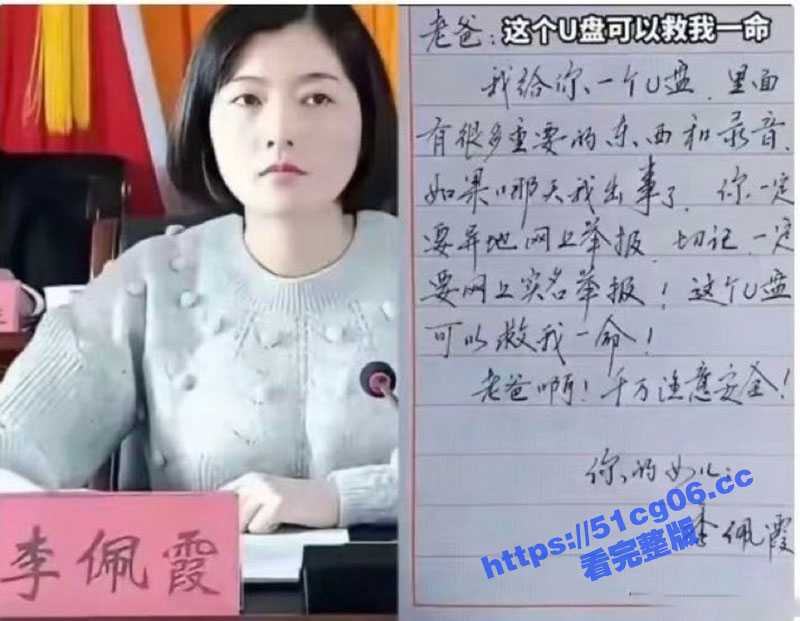 李佩霞
老爸：这个U盘可以救我一命
我给你一个U盘，里面
有很多重要的东西和录音，
如果哪天我出事了，你一定
要异地网上举报，切记，一定
要网上实名举报！这个U盘
可以救我一命！
老爸啊！千万注意安全！
你的女儿：
李佩霞
https://51cg06.cc
看完整版